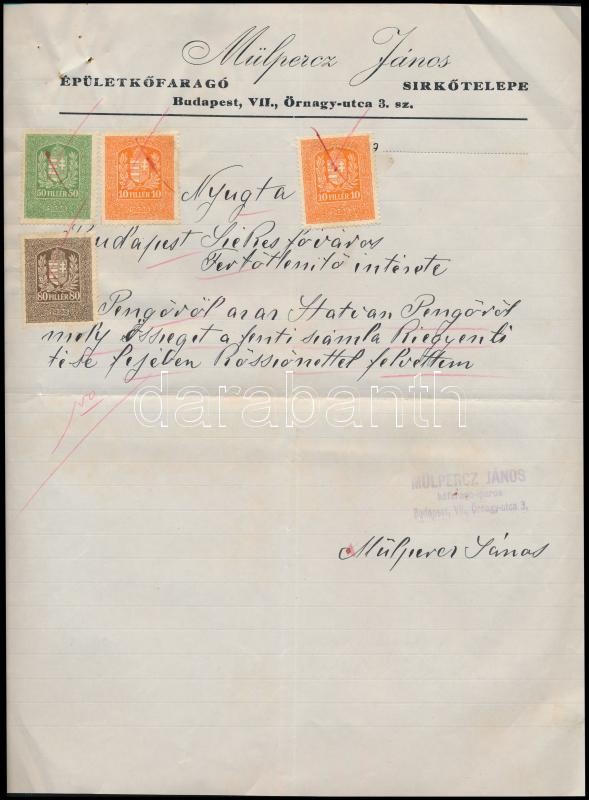 Mülpercz János
ÉPÜLETKŐFARAGÓ SIRKŐTELEPE
Budapest, VII., Örnagy-utca 3. sz.
50 FILLÉR 50
10 FILLÉR 10
10 FILLÉR 10
Nyugta
Budapest Székes főváros
Fertőtlenitő intézete
80 FILLÉR 80
Pengőről azaz Hatvan Pengőről
mely összeget a fenti számla kiegyenli
tése fejében kőszönettel felvettem
darabanth
MÜLPERCZ JÁNOS
kőfaragó-iparos
Budapest, VII., Örnagy-utca 3.
Mülpercz János